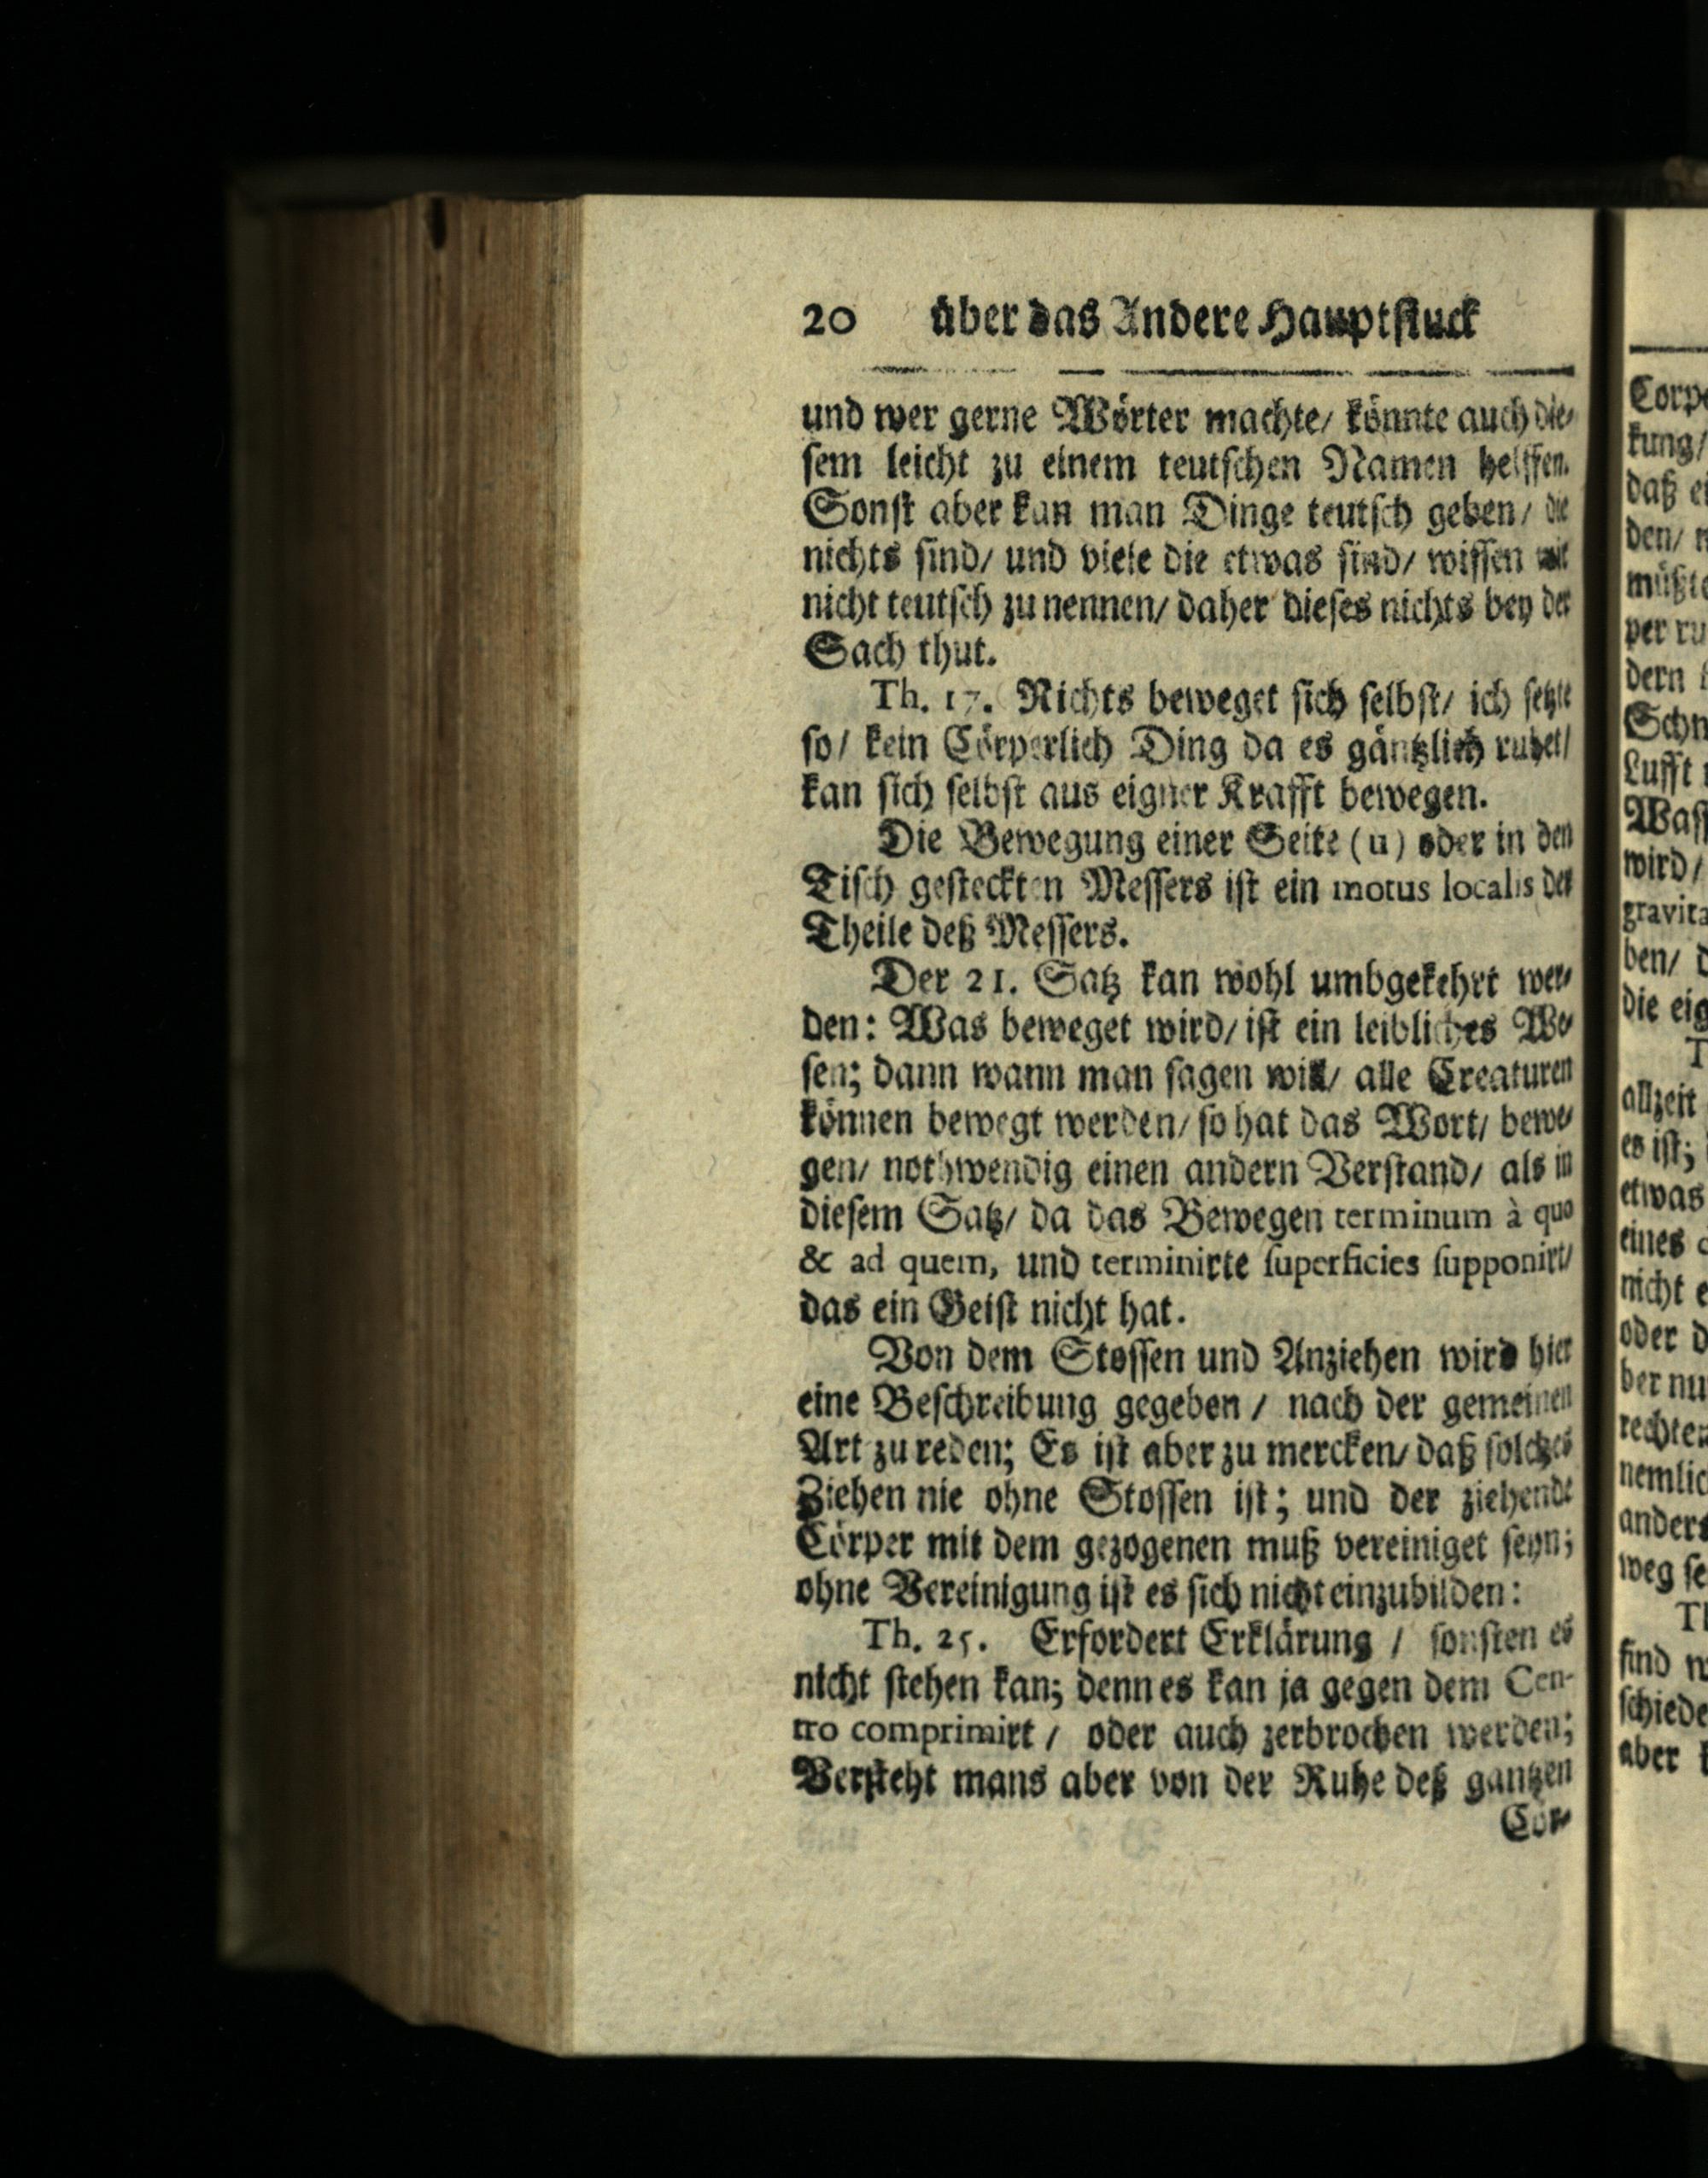 20 über das Andere Hauptstuck
und wer gerne Wörter machte/ könnte auch die-
sem leicht zu einem teutschen Namen helffen.
Sonst aber kan man Dinge teutsch geben/ die
nichts sind/ und viele die etwas sind/ wissen wir
nicht teutsch zu nennen/ daher dieses nichts bey der
Sach thut.
Th. 17. Nichts beweget sich selbst/ ich setzte
so/ kein Cörperlich Ding da es gäntzlich ruhet/
kan sich selbst aus eigner Krafft bewegen.
Die Bewegung einer Seite (u) oder in den
Tisch gesteckten Messers ist ein motus localis der
Theile deß Messers.
Der 21. Satz kan wohl umbgekehrt wer-
den: Was beweget wird/ ist ein leibliches We-
sen; dann wann man sagen will/ alle Creaturen
können bewegt werden/ so hat das Wort/ bewe-
gen/ nothwendig einen andern Verstand/ als in
diesem Satz/ da das Bewegen terminum à quo
& ad quem, und terminirte superficies supponirt/
das ein Geist nicht hat.
Von dem Stossen und Anziehen wird hier
eine Beschreibung gegeben / nach der gemeinen
Art zu reden; Es ist aber zu mercken/ daß solches
Ziehen nie ohne Stossen ist; und der ziehende
Cörper mit dem gezogenen muß vereiniget seyn;
ohne Vereinigung ist es sich nicht einzubilden:
Th. 25. Erfordert Erklärung / sonsten es
nicht stehen kan; denn es kan ja gegen dem Cen-
tro comprimirt / oder auch zerbrochen werden;
Versteht mans aber von der Ruhe deß gantzen
Cör-
kung/
den/
wird/
ben/
es ist;
etwas
eines
nicht
oder